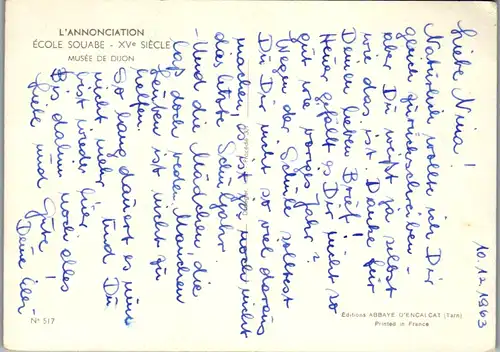 L'ANNONCIATION
ÉCOLE SOUABE - XVe SIÈCLE
MUSÉE DE DIJON
10.12.1963
Liebe Nina!
Natürlich wollte ich Dir
gleich zurückschreiben -
aber Du weißt ja selbst
wie das ist. Danke für
Deinen lieben Brief!
Heuer gefällt es Dir nicht so
gut wie voriges Jahr?
Wegen der Schule solltest
Du Dir nicht so viel daraus
machen, es ist ja noch nicht
das letzte Schuljahr.
- Und die Mädchen, die
laß doch reden, Manchen
Leuten ist nicht zu
helfen.
So lang dauert es nun
nicht mehr und Du
bist wieder hier.
Bis dahin noch alles
Liebe und Gute!
Deine
N° 517
Editions ABBAYE D'ENCALCAT (Tarn)
Printed in France